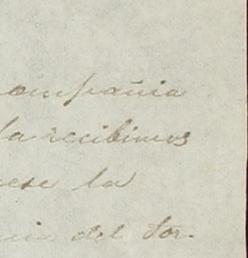 compañia
la recibimos
ese la
cia del Sor.